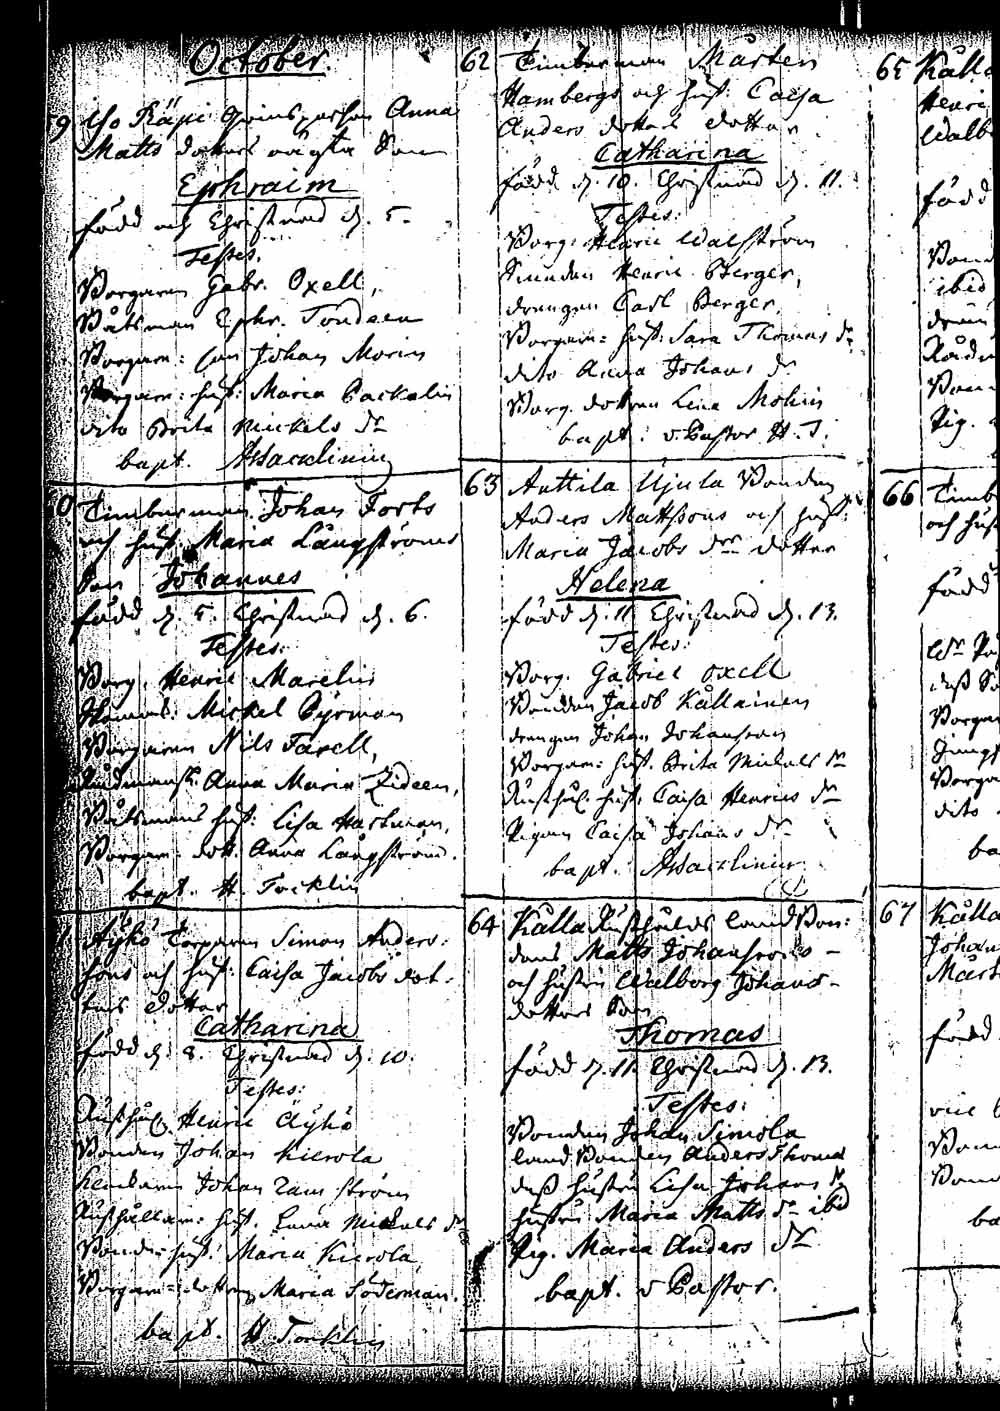 October.
9 Iso Räpi Anna
Matts dotters oägta Son
Ephraim
född och Christnad d. 5.
Testes.
Borgaren Gabr. Oxell,
Båtsman Ephr. Tondeen
Borgare: son Johan Morin
Borgare: hust: Maria Packalin
dito Brita Mickels dr
bapt.
0 Timberman Johan Forts
och hust. Maria Långströms
Son Johannes
född d. 5. Christnad d. 6.
Testes:
Borg. Henric Marelius
Mickel Byrman
Borgaren Nils Farell,
Rådmansh. Anna Maria Zideen,
Båtsmans hust: Lisa Hartman,
Borgare: dott. Anna Långström.
bapt. H. Forklin
1 Äyhö Torparen Simon Anders:
sons och hust: Caisa Jacobs dot:
ters dotter
Catharina
född d. 8. Christnad d. 10.
Testes:
Rusthåll. Henric Äyhö
Bonden Johan Kierola
Johan Tamström
Rusthållare: hust. Mickels dr
Bonde: hust: Maria Kierola
Borgare: dottren Maria Söderman.
bapt. H Forklin
62 Timberman Mårten
Hambergs och hust: Caisa
Anders dotters dotter
Catharina
född d. 10. Christnad d. 11.
Testes:
Borg: Henric Walström
Henric Berger,
drengen Carl Berger,
Borgare: hust: Sara Thomas dr
dito Anna Johans dr
Borg. dottren Lena Molin
bapt: v. Pastor H. F.
63 Anttila Ujula Bonden
Anders Mattsons och hust:
Maria Jacobs drs dotter
Helena
född d. 11 Christnad d. 13.
Testes:
Borg. Gabriel Oxell
Bonden Jacob Kållainen
drengen Johan Johansson
Borgare: hust. Brita Mickels dr
Rusthåll. hust: Caisa Henrics dr
Pigan Caisa Johans dr
bapt.
64 Kålla Rusthålds landbon:
dens Matts Johanssons
och hustru Walborg Johans
dotters Son
Thomas
född d. 11. Christnad d. 13.
Testes:
Bonden Johan Simola
landbonden Anders Thomas
dess hustru Lisa Johans dr
hustru Maria Matts dr ibd
Pig. Maria Anders dr
bapt. v Pastor.
65 Kålla
Henri
Walb
född
Bon
ibid
dren
Bon
Pig.
66 Timb
och hust
född
dess
Borgar
Borga
dito
ba
67 Kålla
Johan
Mårt
född
Bon
Bon
ba